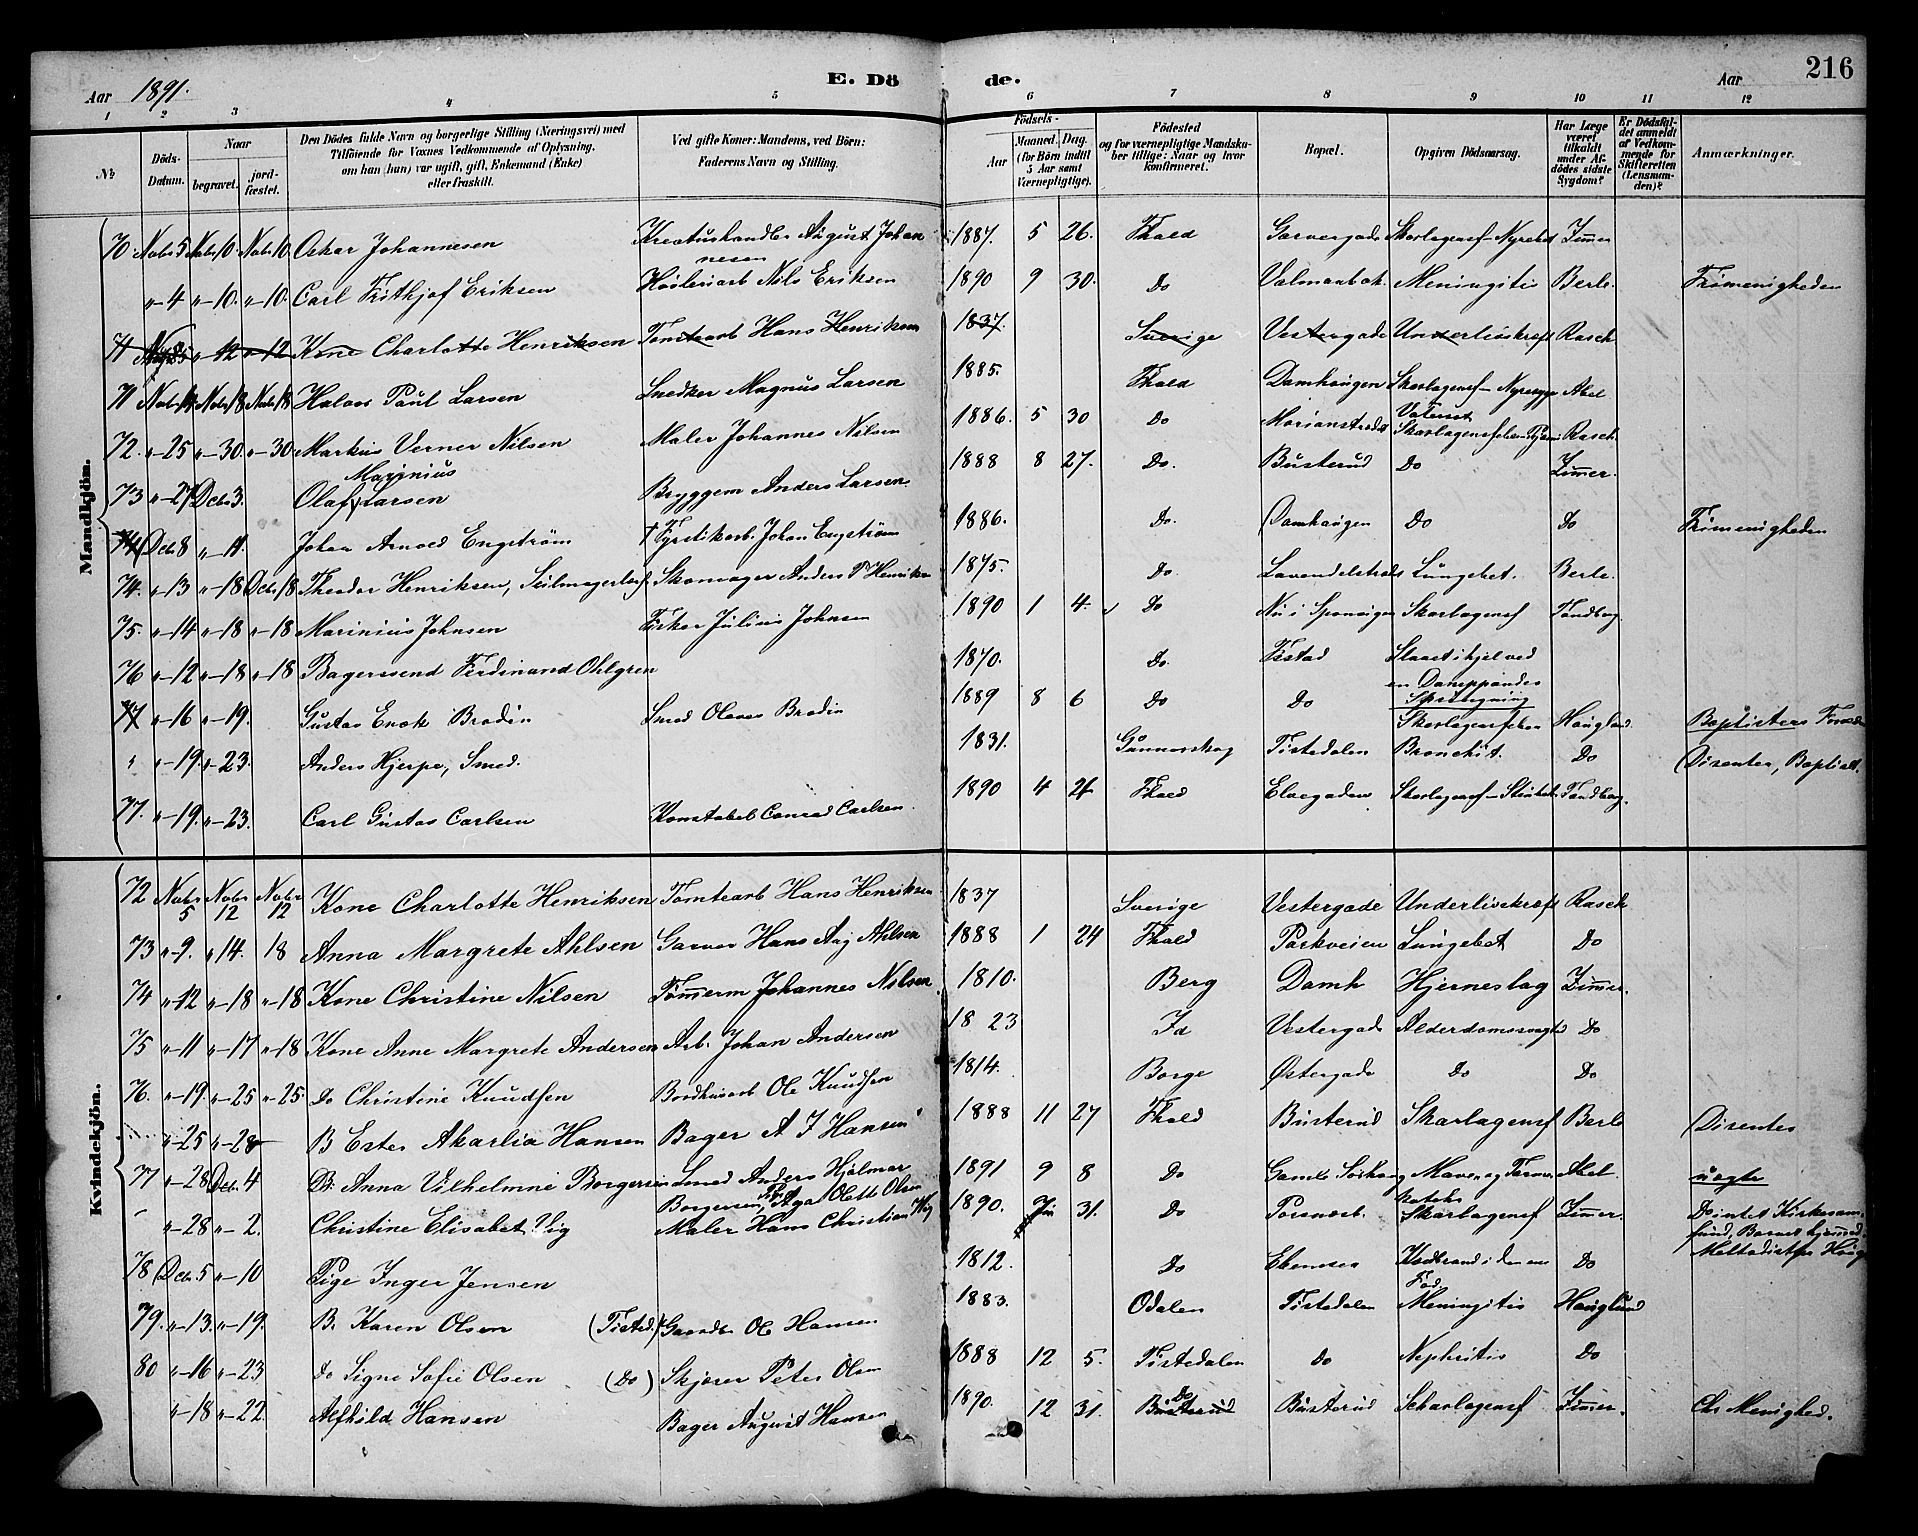 Aar 1891. E. Dö de. Aar 216
1 2 3 4 5 6 7 8 9 10 11 12
№ Döds-Datum. Naar begravet. jord-fæstet. Den Dödes fulde Navn og borgerlige Stilling (Næringsvei) med Tilföiende for Voxnes Vedkommende af Oplysning, om han (hun) var ugift, gift, Enkemand (Enke) eller fraskilt. Ved gifte Koner: Mandens, ved Börn: Faderens Navn og Stilling. Födsels- Aar Maaned. Dag. (for Börn indtil 5 Aar samt Værnepligtige). Födested og for værnepligtige Mandskaber tillige: Naar og hvor konfirmeret. Bopæl. Opgiven Dödsaarsag. Har Læge været tilkaldt under Afdödes sidste Sygdom? Er Dödsfaldet anmeldt af Vedkommende for Skifteretten (Lensmanden)? Anmærkninger.
Mandkjön.
70. Nobr 5 Nobr 10. Nobr 10. Oskar Johannesen Kreaturhandler August Johannesen 1887. 5 26. Fhald Garvergade Skarlagensf - Nyrebet Zimmer
" - 4 " - 10. " - 10. Carl Frithjof Eriksen Høvleriarb Nils Eriksen 1890 9 30. Do Meningitis Berle. Frimenigheden
" - 12 " - 12 Kone Charlotte Henriksen Tomtearb Hans Henriksen 1837. Sverige Vestergade Underlivskræft Rasch
71 Nobr 14 Nobr 18 Nobr 18 Paul Larsen Snedker Magnus Larsen 1885. Fhald Damhaugen Skarlagensf - Abel
72. " - 25 " - 30. " - 30. Markus Verner Nilsen Maler Johannes Nilsen 1886. 5 30 Do Rasch.
73 " - 27 Decbr 3. Olaf Marinius Larsen Bryggem Anders Larsen 1888 8 27. Do. Busterud Do Zimer.
Decbr 8 " - 11. Johan Arnold Engstrøm † Fyrstikarb. Johan Engstrøm 1886. Do. Damhaugen Do Do Frimenigheden
74. " - 13 " - 18 Decbr 18 Theodor Henriksen, Seilmagerlærl Skomager Anders P Henriksen 1875 Do. Lavendelstræde Lungebet. Berle.
75. " - 14 " - 18 " - 18 Marinius Johnsen Fisker Julius Johnsen 1890 1 4. Do Nu i Sponvigen Skarlagensf Tandberg
76 " - 12 " - 18 " - 18 Bagersvend Ferdinand Ohlgren 1870. Do. Tistad Slaaet ihjel ved en Damppandes Sprængning
77 " - 16 " - 19. Gustav Enok Brodin Smed Olaves Brodin 1889 8 6 Do Do Skarlagensfeber Hauglund. Baptisters
" " - 19. " - 23. Anders Hjerpe, Smed. 1831. Gunnarskog Tistedalen Bronchit. Do Disenter, Baptist.
77. " - 19. " - 23. Carl Gustav Carlsen Konstabel Conrad Carlsen. 1890 4 Fhald Elvegaden Skarlagensf - Tandberg.
Kvindekjön.
72 Nobr 5 Nobr 12 Nobr 12 Kone Charlotte Henriksen Tomtearb Hans Henriksen 1837 Sverige Vestergade Underlivskræft Rasch
73 " - 9. " 14. 18 Anna Margrete Ahlsen Garver Hans Aug Ahlsen 1888 1 24 Fhald Parkveien Lungebet Do
74 " - 12 " - 18 " - 18 Kone Christine Nilsen Tømmerm Johannes Nilsen 1810. Berg Damh Hjerneslag Zimmer.
75 " - 11 " - 17 " - 18 Kone Anne Margrete Andersen Arb. Johan Andersen 1823 Id Vestergade Alderdomssvaghd Do
76. " - 19. " - 25 " - 25. Do Christine Knudsen Bordhusarb Ole Knudsen 1814. Borge Østergade Do Do
" - 25 " - 28 B Ester Akarlia Hansen Bager A J Hansen 1888 11 27 Fhald Busterud Skarlagensf Berle Disenter
77 " - 28 Decbr 4 B. Anna Vilhelmine Borgersen Smed Anders Hjalmar Borgersen, Pige Olette Olsen 1891 9 8 Do Mave og Tarmkatarh Abel uægte
" - 28 " - 2. Christine Elisabet Vig Maler Hans Christian Vig 1890. Ju 31. Do Skarlagensf Zimer.
78 Decbr 5 " - 10 Pige Inger Jensen 1812. Do Koldbrand i den ene Fod Do
79. " - 13. " - 19. B. Karen Olsen (Tisted.) Gaardbr Ole Hansen 1883. Odalen Tistedalen Meningitis Hauglund
80 " - 16 " - 23 Do Signe Sofie Olsen (Do) Skjører Peter Olsen 1888 12 5. Tistedalen Do Nephritis Do
" - 18 " - 22. Alfhild Hansen Bager August Hansen 1890. 12 31. Busterud Do Busterud Scharlagensf Zimer. Chr Menighed.